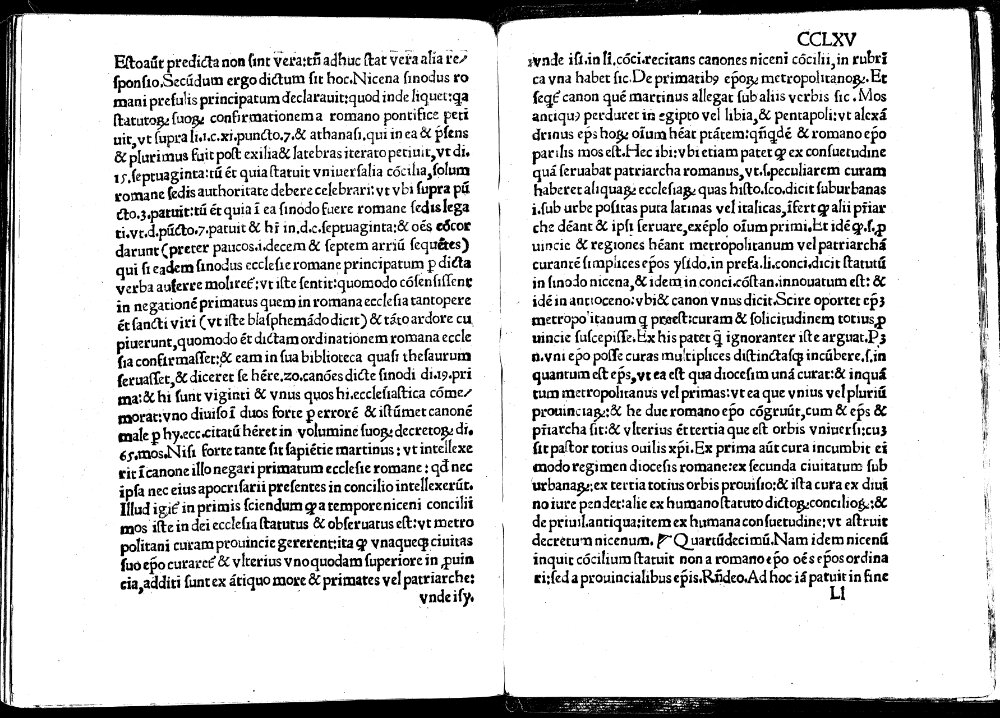 Estoaūt predicta non sint vera: tn̄ adhuc stat vera alia re/
sponsio. Secūdum ergo dictum sit hoc. Nicena sinodus ro
mani presulis principatum declarauit: quod inde liquet: qa
statutoꝝ suoꝝ confirmationem a romano pontifice peti
uit, vt supra li.1.c.xi. puncto.7. & athanasi, qui in ea & p̄sens
& plurimus fuit post exilia & latebras iterato petiuit, vt di.
15. septuaginta: tū ēt quia statuit vniuersalia cōcilia, solum
romane sedis authoritate debere celebrari: vt vbi supra pū
cto.3. patuit: tū ēt quia ī ea sinodo fuere romane sedis lega
ti. vt. d. pūcto.7. patuit & hr̄ in. d. c. septuaginta: & oēs cōcor
darunt (preter paucos. i. decem & septem arriū sequētes)
qui si eadem sinodus ecclesie romane principatum ꝑ dicta
verba auferre moliret᷑: vt iste sentit: quomodo cōsensissent
in negationē primatus quem in romana ecclesia tantopere
ēt sancti viri (vt iste blasphemādo dicit) & tāto ardore cu
piuerunt, quomodo ēt dictam ordinationem romana eccle
sia confirmasset: & eam in sua biblioteca quasi thesaurum
seruasset, & diceret se hēre. 20. canōes dicte sinodi di.19. pri
ma: & hi sunt viginti & vnus quos hi. ecclesiastica cōme/
morat: vno diuiso ī duos forte ꝑ errorē & istūmet canonē
male ꝑ hy. ecc. citatū hēret in volumine suoꝝ decretoꝝ di.
65. mos. Nisi forte tante sit sapiētie martinus: vt intellexe
rit ī canone illo negari primatum ecclesie romane: qd̄ nec
ipsa nec eius apocrisarii presentes in concilio intellexerūt.
Illud igit᷑ in primis sciendum ꝙ a tempore niceni concilii
mos iste in dei ecclesia statutus & obseruatus est: vt metro
politani curam prouincie gererent: ita ꝙ vnaqueqꝫ ciuitas
suo ep̄o curaret᷑ & vlterius vno quodam superiore in ꝓuin
cia, additi sunt ex ātiquo more & primates vel patriarche:
vnde isy.
CCLXV
vnde isi. in li. cōci. recitans canones niceni cōcilii, in rubrī
ca vna habet sic. De primatibꝰ ep̄oꝝ metropolitanoꝝ. Et
seq̄t᷑ canon quē martinus allegat sub aliis verbis sic. Mos
antiquꝰ perduret in egipto vel libia, & pentapoli: vt alexā
drinus ep̄s hoꝝ oīum hēat ptātem: qn̄qdē & romano ep̄o
parilis mos est. Hec ibi: vbi etiam patet ꝙ ex consuetudine
quā seruabat patriarcha romanus, vt. s. peculiarem curam
haberet aliquaꝝ ecclesiaꝝ quas histo. sco. dicit suburbanas
i. sub urbe positas puta latinas vel italicas, īfert ꝙ alii pr̄iar
che dēant & ipsi seruare, exēplo oīum primi. Et idē ꝙ. s. ꝓ
uincie & regiones hēant metropolitanum vel patriarchā
curantē simplices ep̄os ysido. in prefa. li. conci. dicit statutū
in sinodo nicena, & idem in conci. cōstan. innouatum est: &
idē in antioceno: vbi & canon vnus dicit. Scire oportet ep̄ꝫ
metropolitanum q̄ preest: curam & solicitudinem totius ꝓ
uincie suscepisse. Ex his patet q̄ ignoranter iste arguat. Pꝫ
n. vni ep̄o posse curas multiplices distinctasqꝫ incūbere. s. in
quantum est ep̄s, vt ea est qua diocesim unā curat: & inquā
tum metropolitanus vel primas: vt ea que vnius vel pluriū
prouinciaꝝ: & he due romano ep̄o cōgruūt, cum & ep̄s &
pr̄iarcha sit: & vlterius ēt tertia que est orbis vniuersi: cuꝫ
sit pastor totius ouilis xp̄i. Ex prima aūt cura incumbit ei
modo regimen diocesis romane: ex secunda ciuitatum sub
urbanaꝝ: ex tertia totius orbis prouisio: & ista cura ex diui
no iure pendet: alie ex humano statuto dictoꝝ concilioꝝ: &
de priuil. antiqua: item ex humana consuetudine: vt astruit
decretum nicenum. ¶ Quartūdecimū. Nam idem nicenū
inquit cōcilium statuit non a romano ep̄o oēs ep̄os ordina
ri: sed a prouincialibus ep̄is. Rn̄deo. Ad hoc iā patuit in fine
Ll